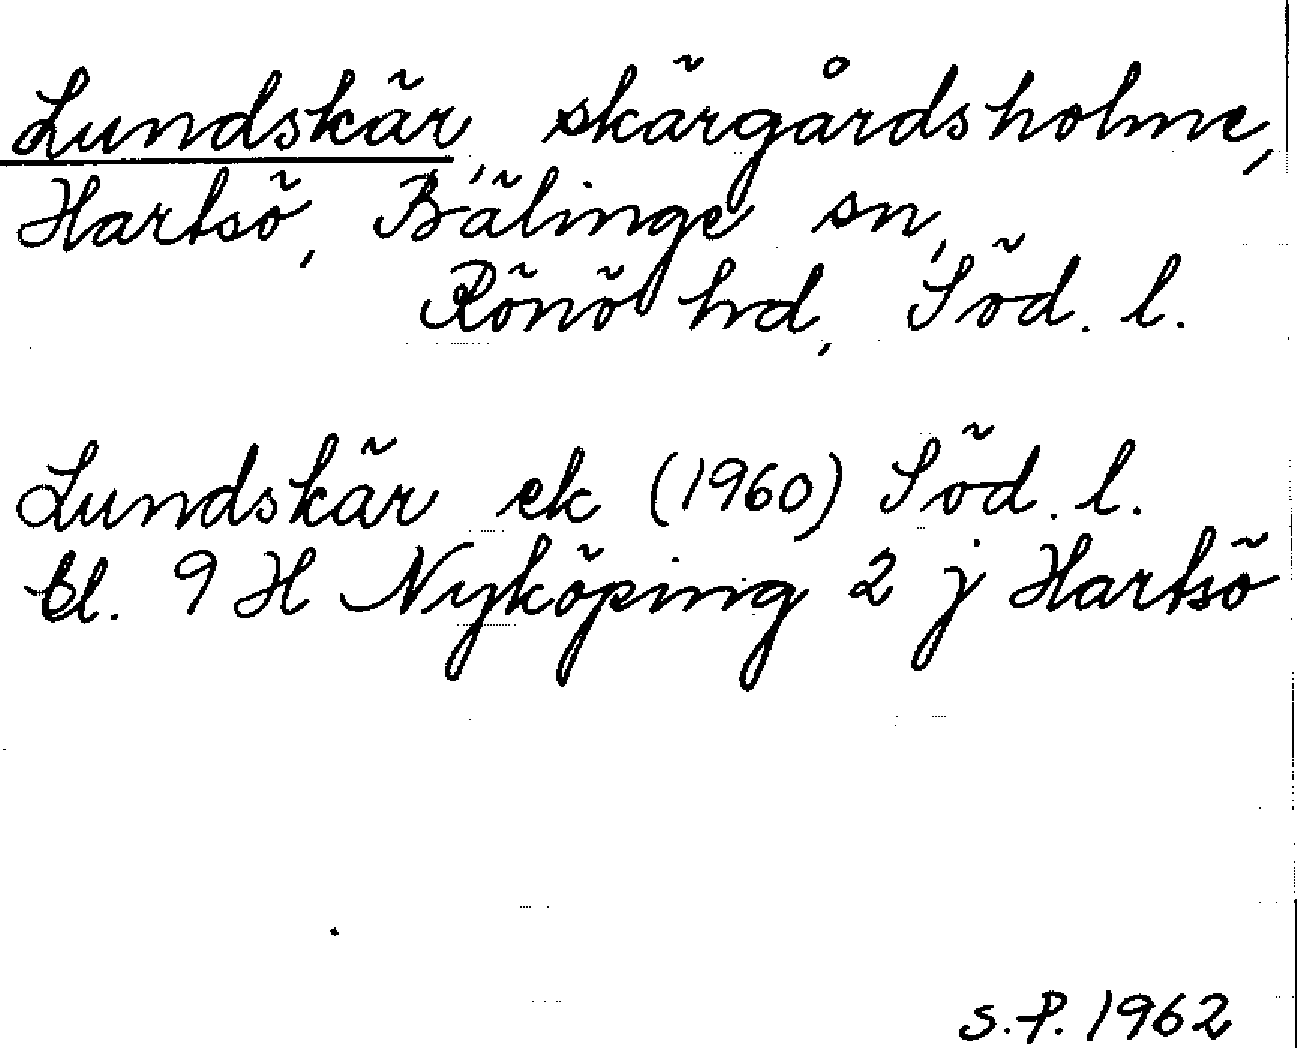 Lundskär, skärgårdsholme,
Hartsö, Bälinge sn,
Rönö hd, Söd. l.
Lundskär ek (1960) Söd. l.
bl. 9 H Nyköping 2 j Hartsö
S.P. 1962